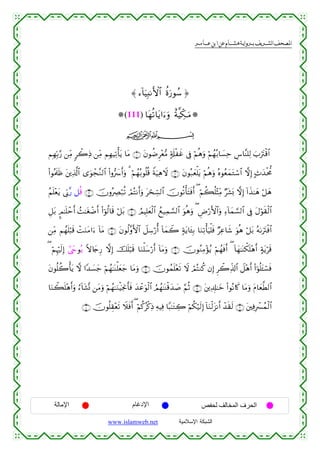 المصحف الشريف برواية هشام عن ابن عامر
﴿ سُورَةُ ٱلْأَنۢبِيَآءِ ﴾
*مَكِّيَّةٌ وَءَايَاتُهَا (111)*
بِسْمِ ٱللَّهِ ٱلرَّحْمَٰنِ ٱلرَّحِيمِ
ٱقْتَرَبَ لِلنَّاسِ حِسَابُهُمْ وَهُمْ فِى غَفْلَةٍ مُّعْرِضُونَ ۝ مَا يَأْتِيهِم مِّن ذِكْرٍ مِّن رَّبِّهِم
مُّحْدَثٍ إِلَّا ٱسْتَمَعُوهُ وَهُمْ يَلْعَبُونَ ۝ لَاهِيَةً قُلُوبُهُمْ ۗ وَأَسَرُّوا۟ ٱلنَّجْوَى ٱلَّذِينَ ظَلَمُوا۟
هَلْ هَٰذَآ إِلَّا بَشَرٌ مِّثْلُكُمْ ۖ أَفَتَأْتُونَ ٱلسِّحْرَ وَأَنتُمْ تُبْصِرُونَ ۝ قُل رَّبِّى يَعْلَمُ
ٱلْقَوْلَ فِى ٱلسَّمَآءِ وَٱلْأَرْضِ ۖ وَهُوَ ٱلسَّمِيعُ ٱلْعَلِيمُ ۝ بَلْ قَالُوٓا۟ أَضْغَٰثُ أَحْلَٰمٍ بَلِ
ٱفْتَرَىٰهُ بَلْ هُوَ شَاعِرٌ فَلْيَأْتِنَا بِـَٔايَةٍ كَمَآ أُرْسِلَ ٱلْأَوَّلُونَ ۝ مَآ ءَامَنَتْ قَبْلَهُم مِّن
قَرْيَةٍ أَهْلَكْنَٰهَآ ۖ أَفَهُمْ يُؤْمِنُونَ ۝ وَمَآ أَرْسَلْنَا قَبْلَكَ إِلَّا رِجَالًا يُوحَىٰٓ إِلَيْهِمْ ۖ
فَسْـَٔلُوٓا۟ أَهْلَ ٱلذِّكْرِ إِن كُنتُمْ لَا تَعْلَمُونَ ۝ وَمَا جَعَلْنَٰهُمْ جَسَدًا لَّا يَأْكُلُونَ
ٱلطَّعَامَ وَمَا كَانُوا۟ خَٰلِدِينَ ۝ ثُمَّ صَدَقْنَٰهُمُ ٱلْوَعْدَ فَأَنجَيْنَٰهُمْ وَمَن نَّشَآءُ وَأَهْلَكْنَا
ٱلْمُسْرِفِينَ ۝ لَقَدْ أَنزَلْنَآ إِلَيْكُمْ كِتَٰبًا فِيهِ ذِكْرُكُمْ ۖ أَفَلَا تَعْقِلُونَ ۝
الحرف المخالف لحفص الإدغام الإمالة
الشبكة الإسلامية www.islamweb.net